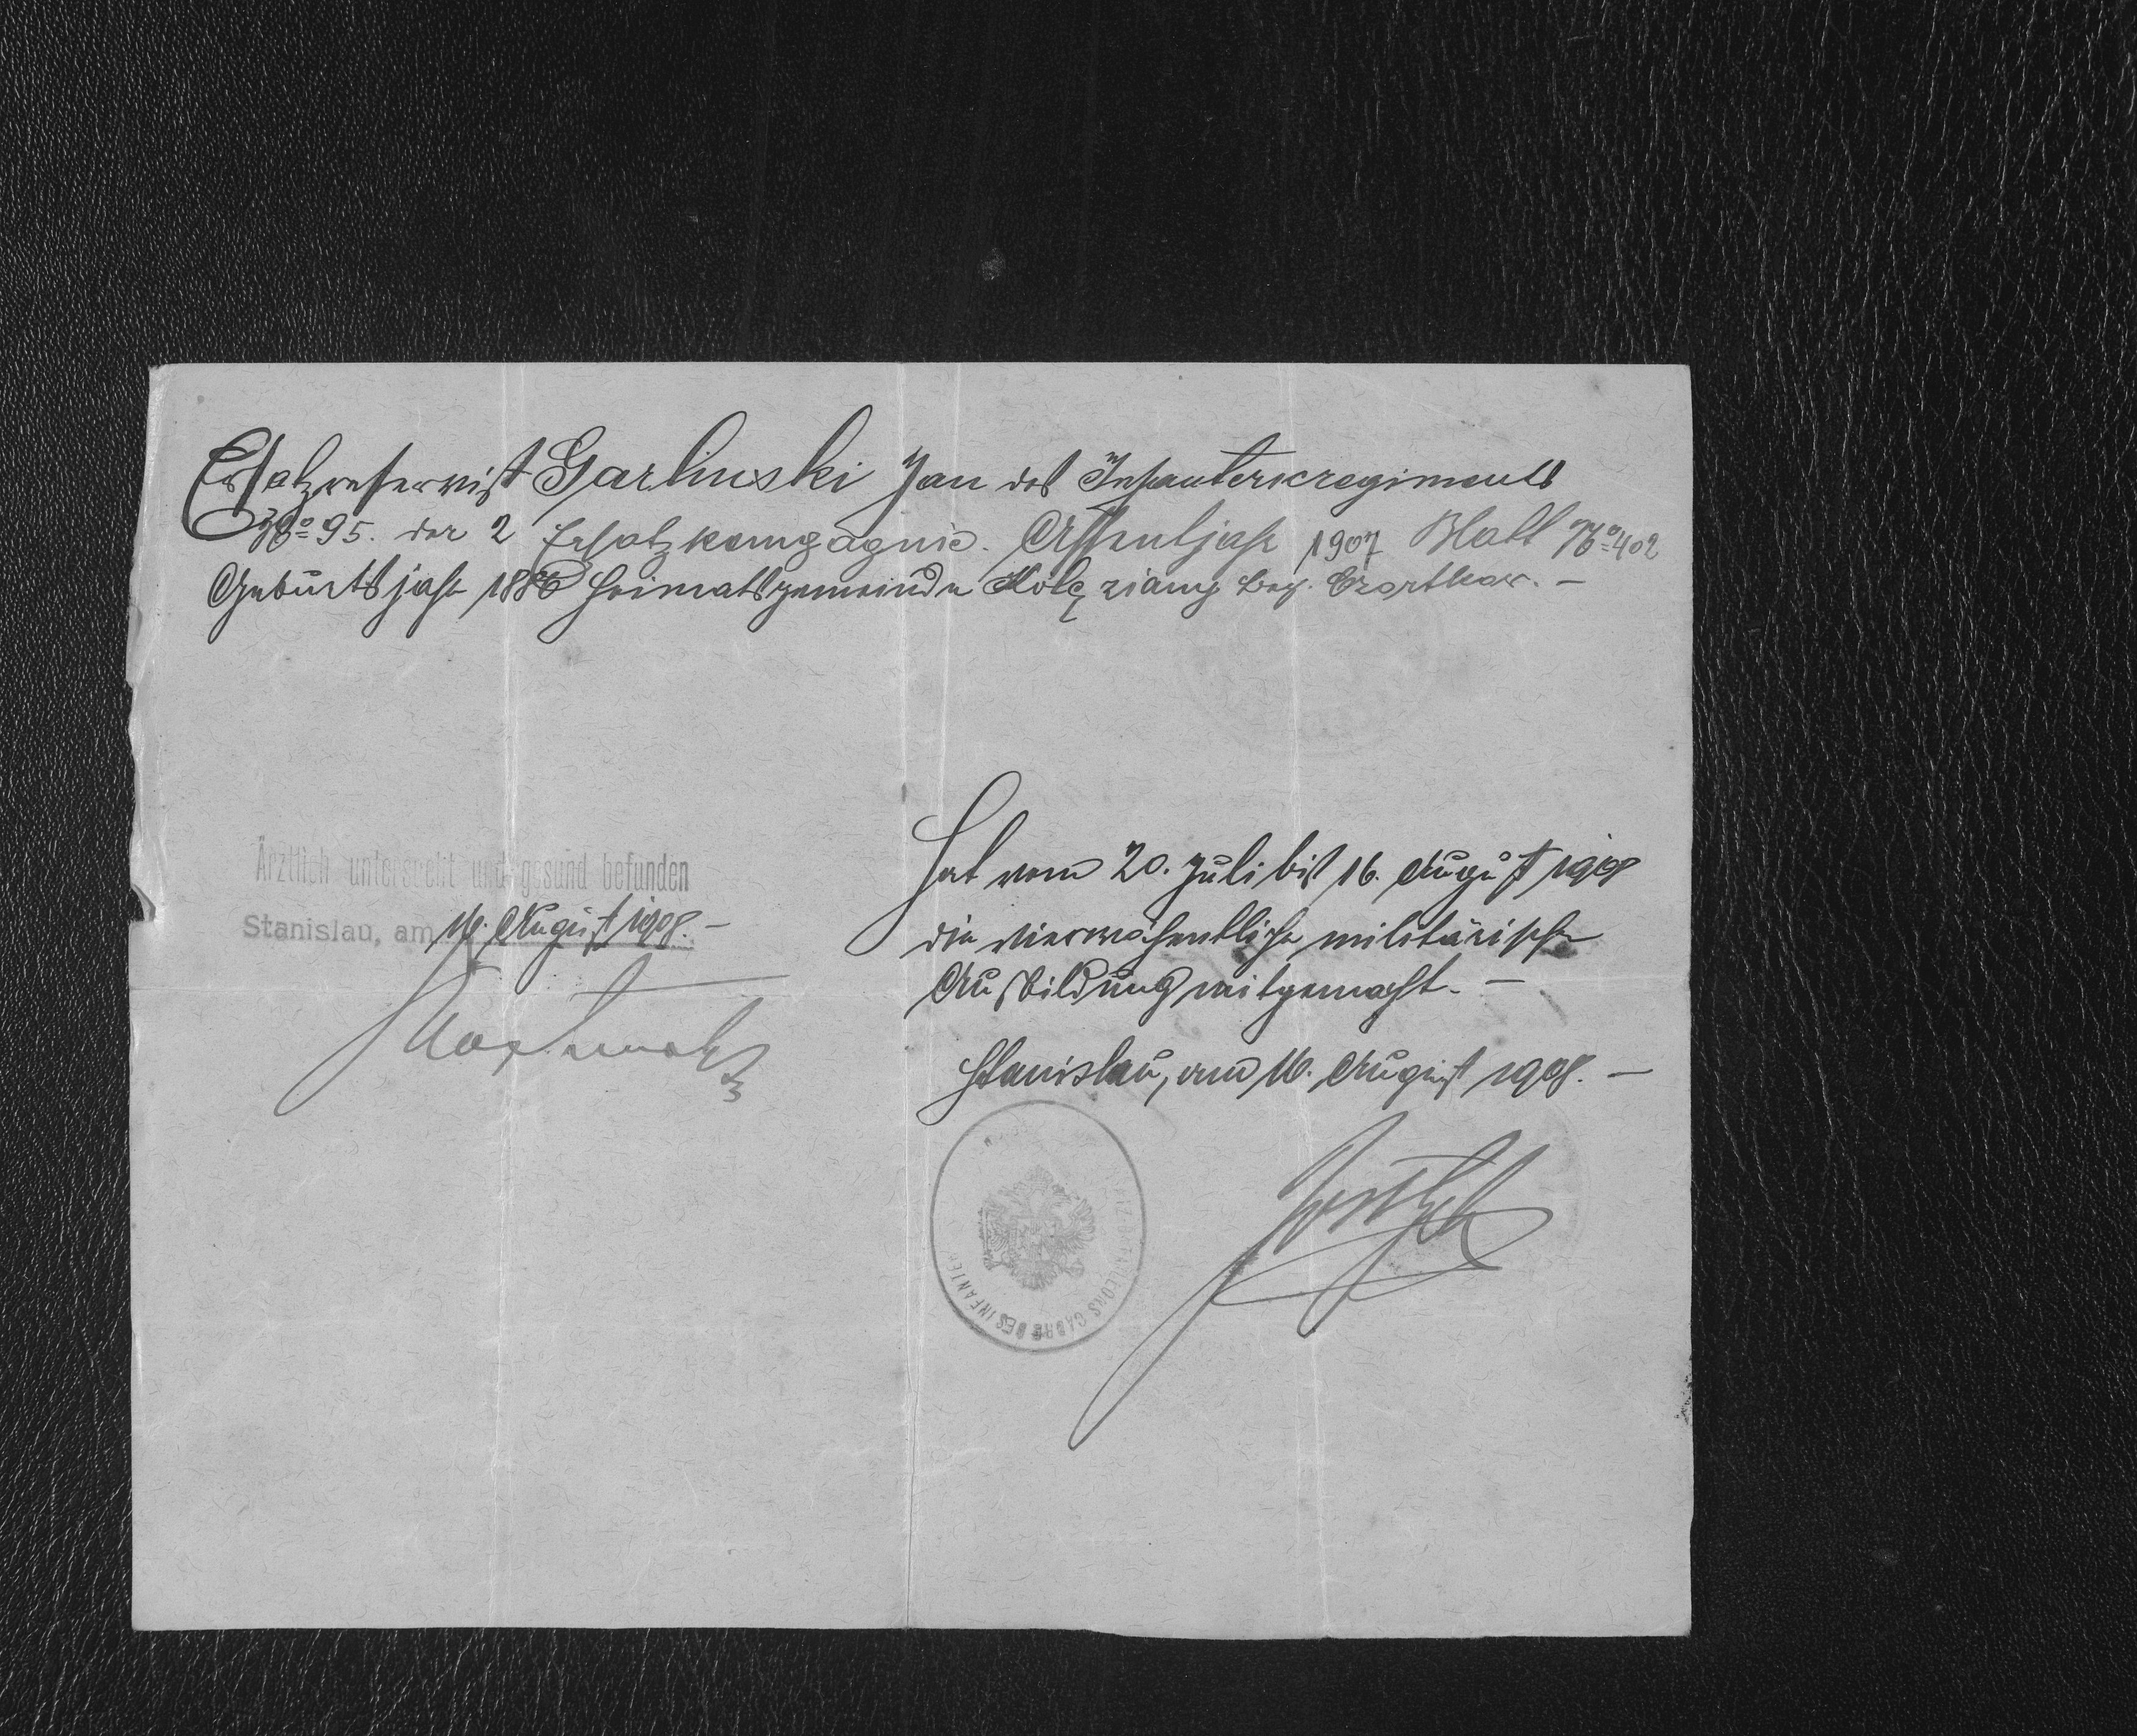 Ersatzreservist Garlinski Jan des Infanterieregiments
No 95. der 2 Ersatzkompagnie. Assentjahr 1907 Blatt No 402
Geburtsjahr 1886 Heimatsgemeinde Bez. Czortków. –
Hat vom 20. Juli bis 16. August 1908
die vierwöchentliche militärische
Ausbildung mitgemacht. –
Stanislau, am 16. August 1908. –
Ärztlich untersucht und gesund befunden
Stanislau, am 16. August 1908. –
CADRE DES INFANTERIE